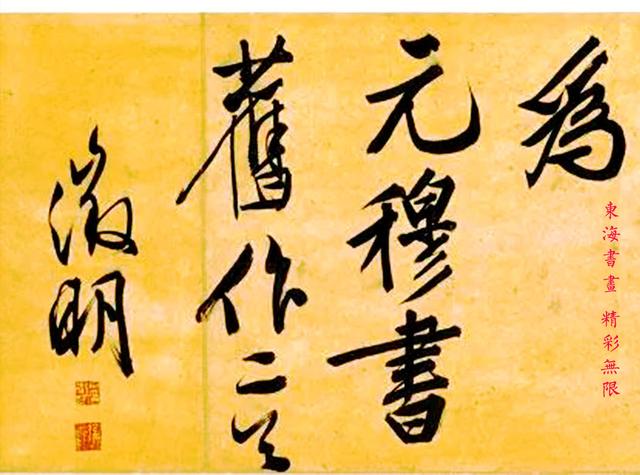 為
元穆書
舊作二首
徵明
東海書畫 精彩無限